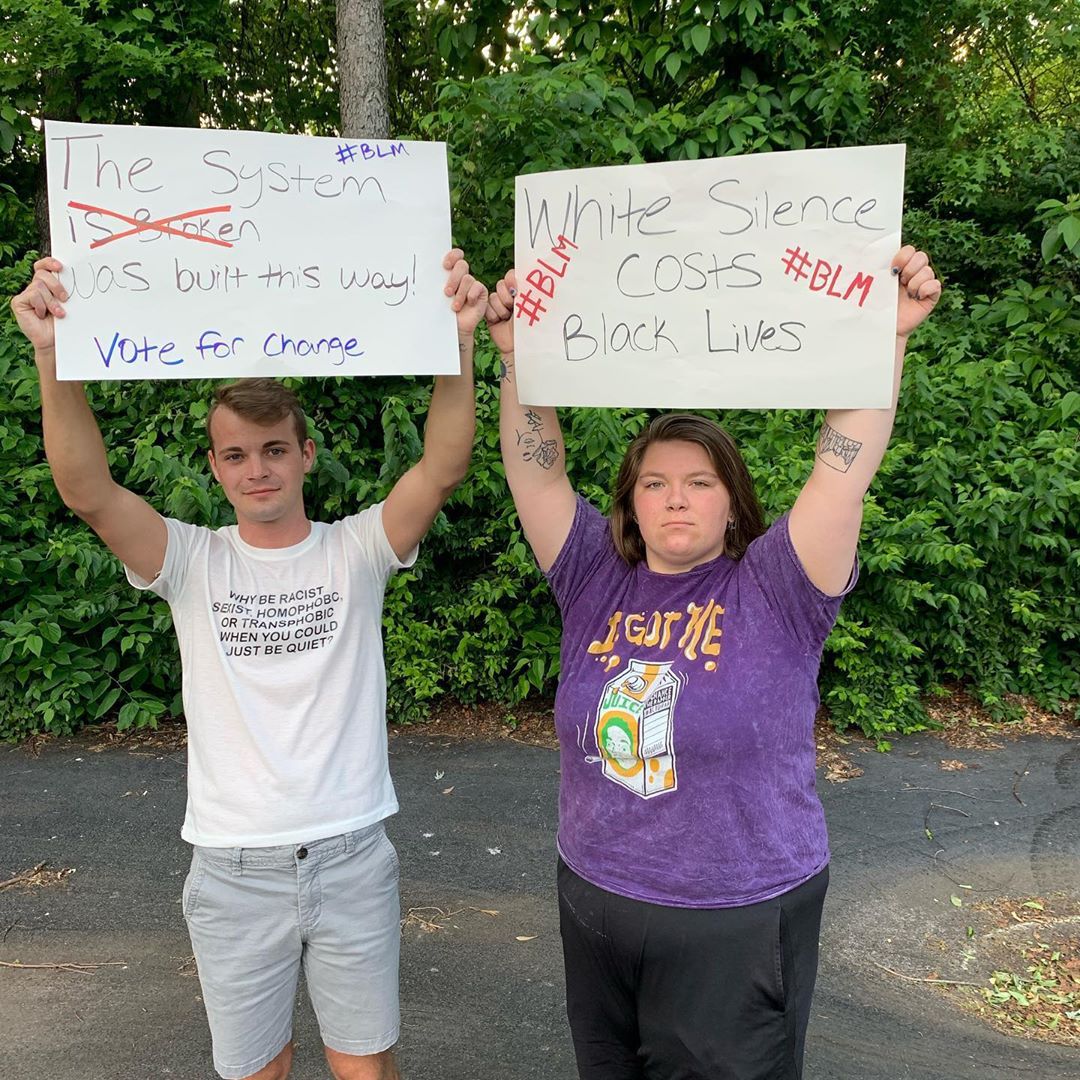 The System #BLM
is Broken
was built this way!
Vote for Change
White Silence
#BLM Costs #BLM
Black Lives
WHY BE RACIST,
SEXIST, HOMOPHOBIC,
OR TRANSPHOBIC
WHEN YOU COULD
JUST BE QUIET?
I GOT ME
JUIC